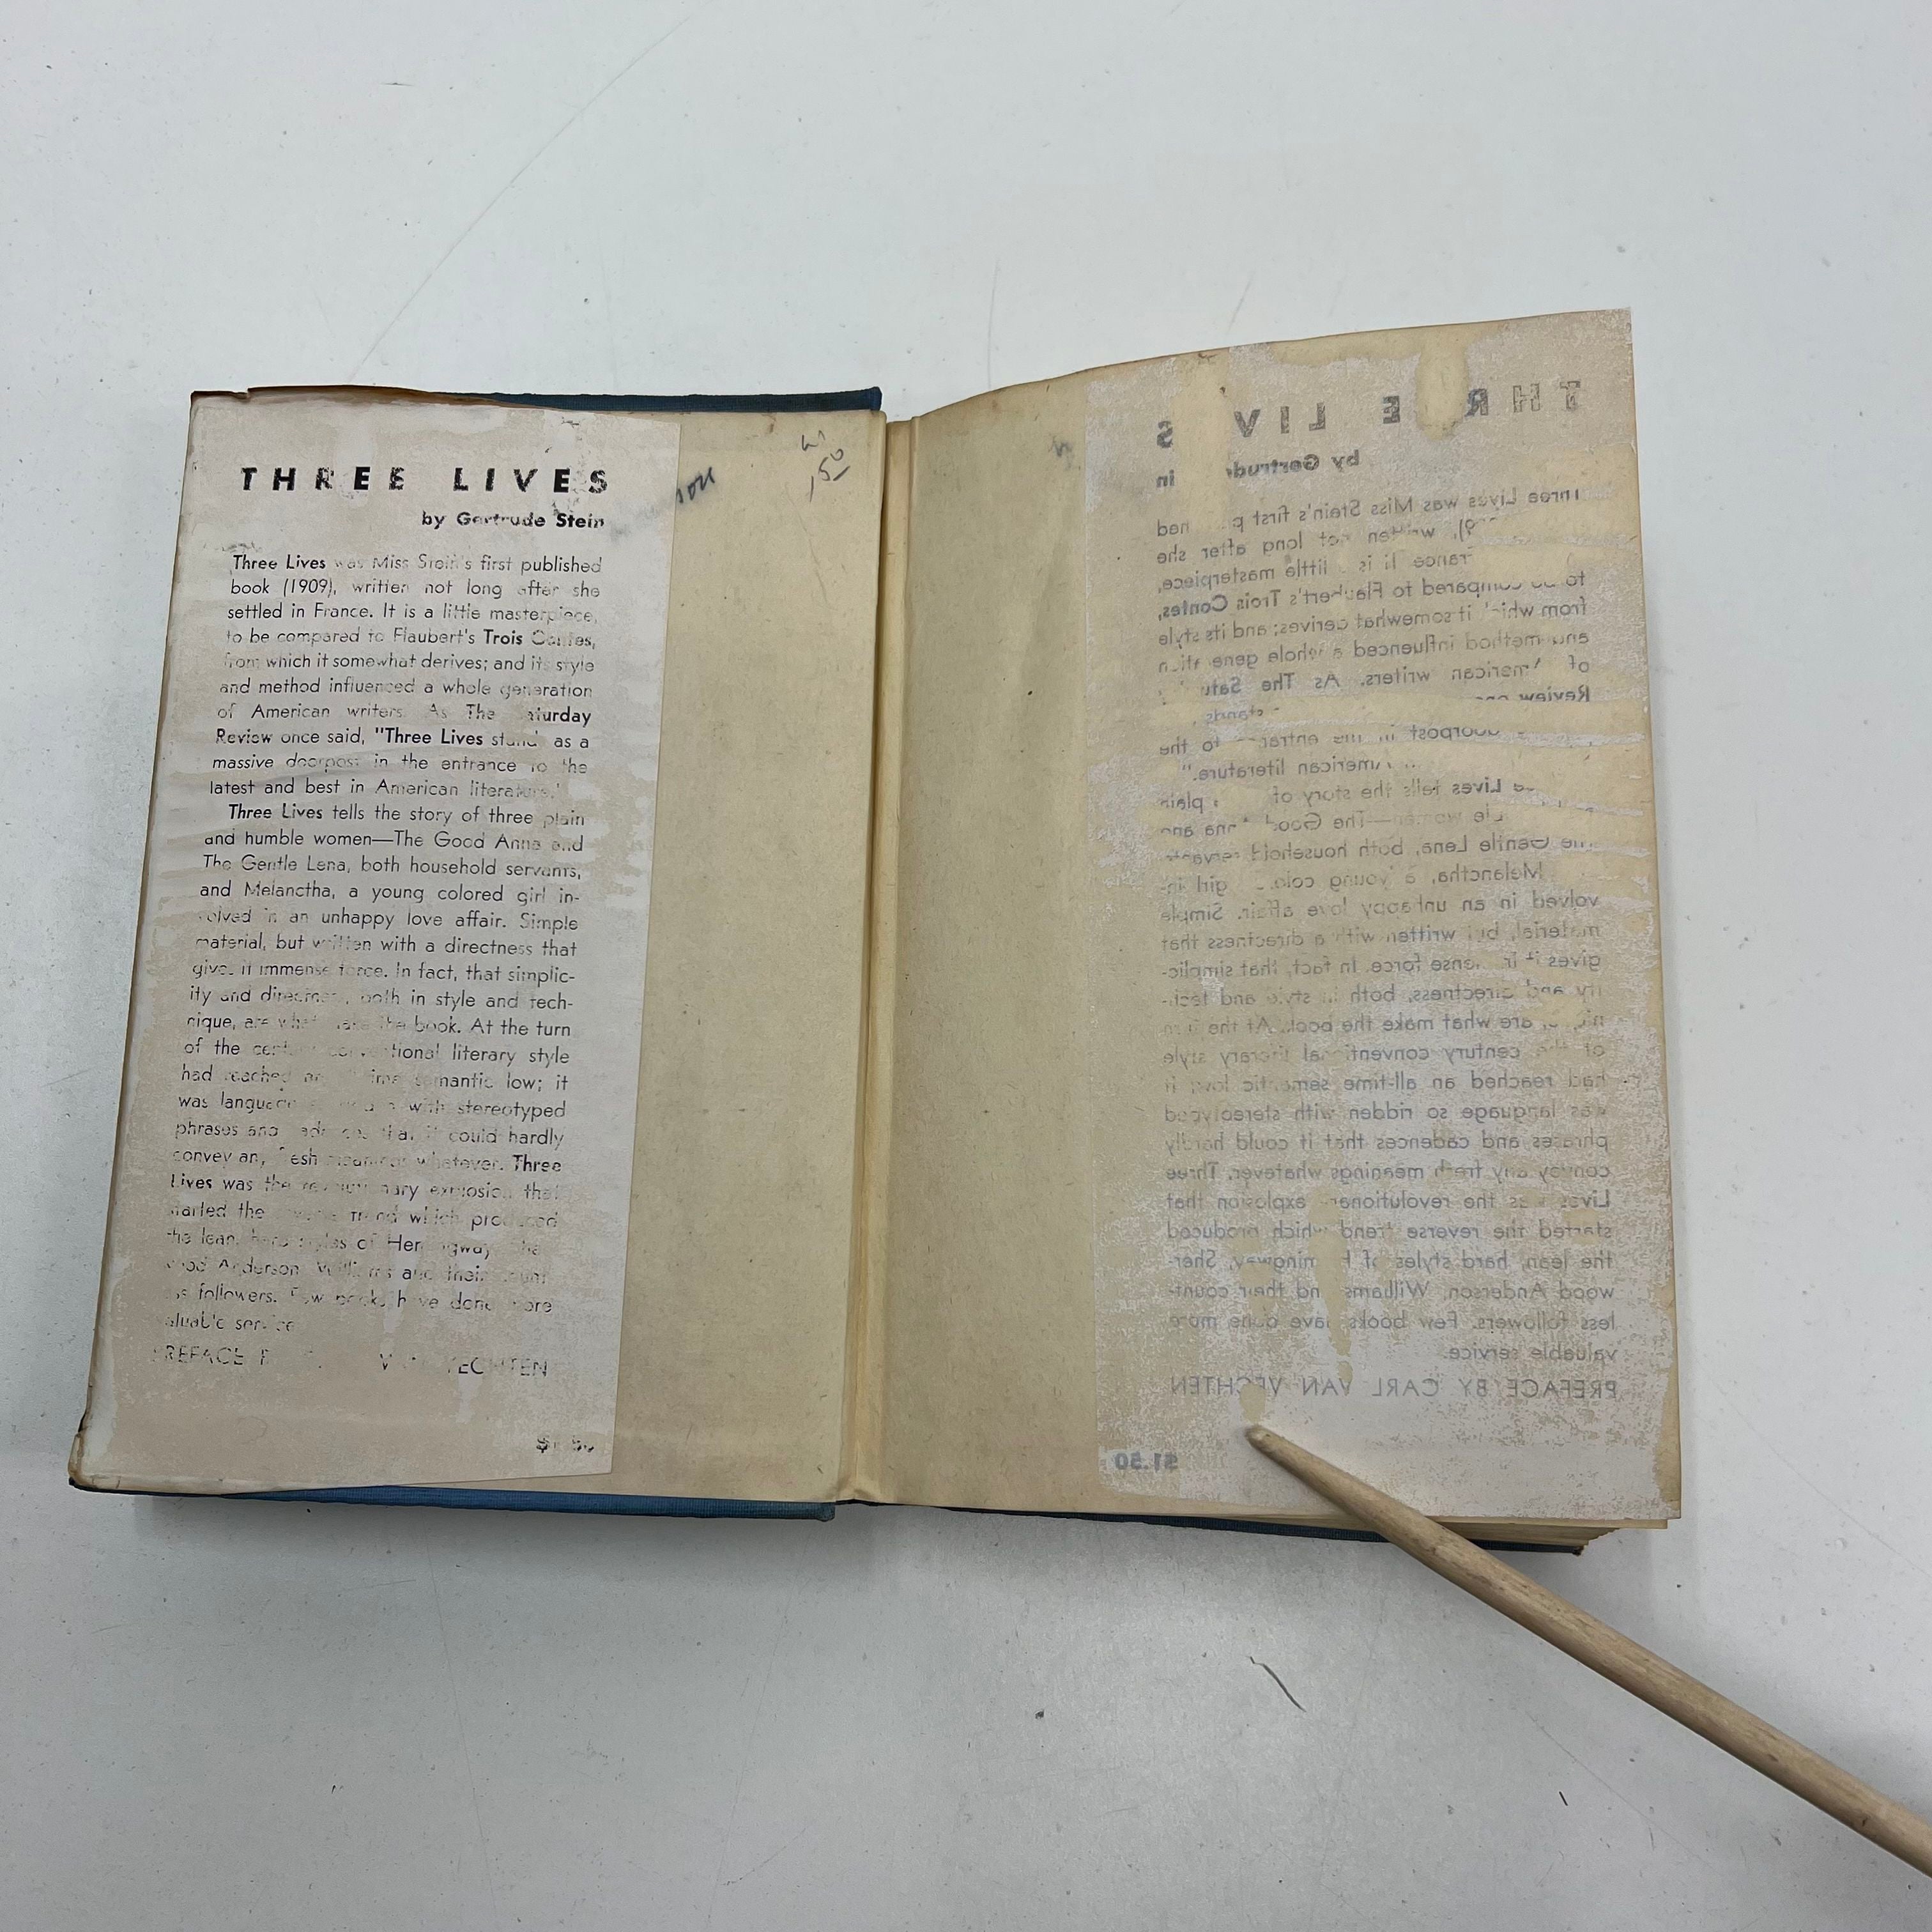 THREE LIVES
by Gertrude Stein
Three Lives was Miss Stein's first published
book (1909), written not long after she
settled in France. It is a little masterpiece,
to be compared to Flaubert's Trois Contes,
from which it somewhat derives; and its style
and method influenced a whole generation
of American writers. As The Saturday
Review once said, "Three Lives stands as a
massive doorpost in the entrance to the
latest and best in American literature."
Three Lives tells the story of three plain
and humble women—The Good Anna and
The Gentle Lena, both household servants,
and Melanctha, a young colored girl in-
volved in an unhappy love affair. Simple
material, but written with a directness that
gives it immense force. In fact, that simplic-
ity and directness, both in style and tech-
nique, are what make the book. At the turn
of the century conventional literary style
had reached an all-time semantic low; it
was language so ridden with stereotyped
phrases and cadences that it could hardly
convey any fresh meanings whatever. Three
Lives was the revolutionary explosion that
started the reverse trend which produced
the lean, hard styles of Hemingway, Sher-
wood Anderson, Williams and their count-
less followers. Few books have done more
valuable service.
PREFACE BY CARL VAN VECHTEN
$1.50